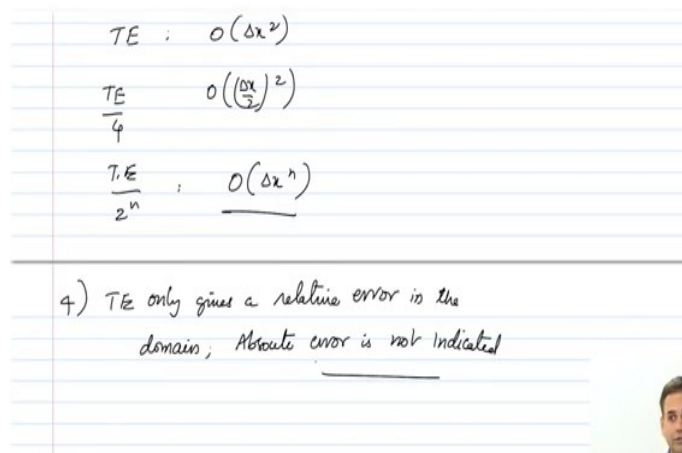 TE : O(Δx²)
TE/4 O((Δx/2)²)
T.E/2ⁿ : O(Δxⁿ)
4) TE only gives a relative error in the
domain; Absoute error is not Indicated